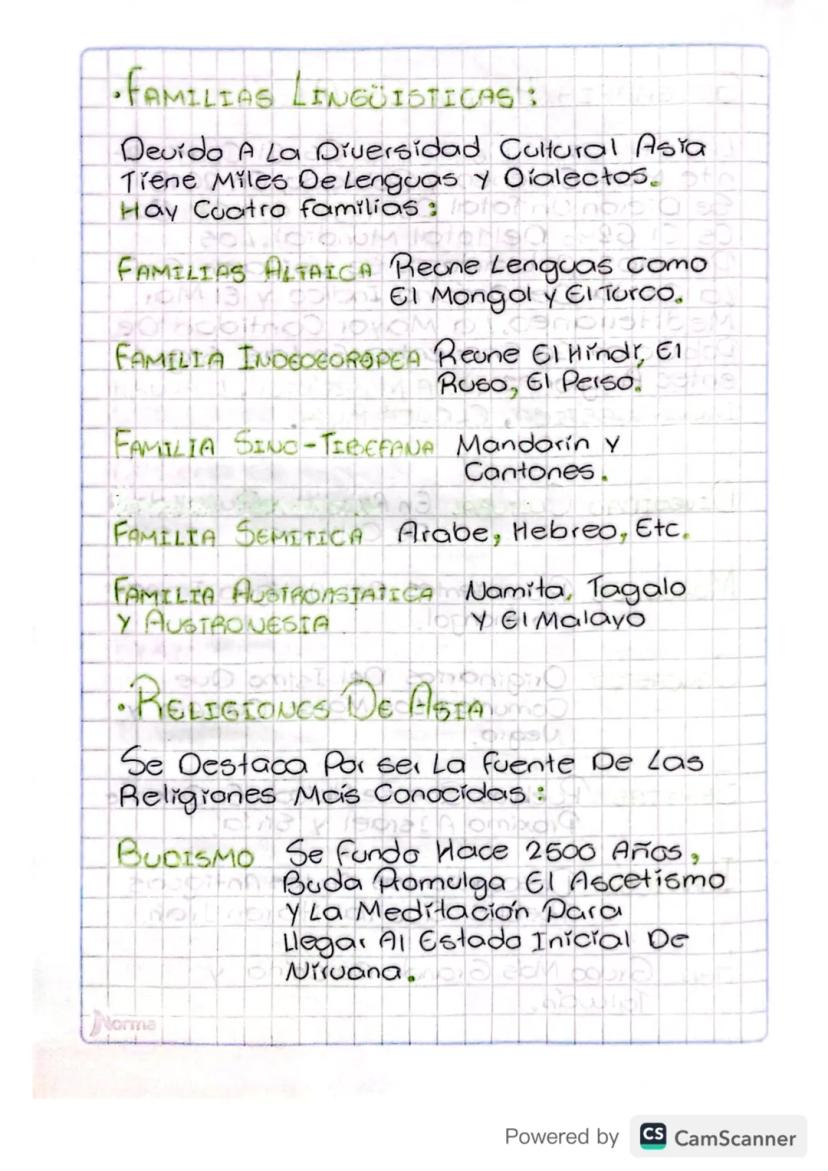 ·FAMILIAS LINGÜISTICAS:
Devido A La Diversidad Cultural Asia
Tiene Miles De Lenguas y Dialectos.
Hay Cuatro familias:
FAMILIAS ALTAICA Reune Lenguas como
El Mongol y El Turco.
FAMILIA INDOEOROPEA Reune El Hindi, El
Ruso, El Perso.
FAMILIA SINO-TIBEFANA Mandarín y
Cantones.
FAMILIA SEMITICA Arabe, Hebreo, Etc.
FAMILIA AUSTROASIATICA Namita, Tagalo
Y AUSTRONESIA Y El Malayo
·RELIGIONES DE ASIA
Se Destaca Por ser La fuente De Las
Religiones Más Conocidas:
BUDISMO Se fundo Hace 2500 Años,
Buda Promulga El Ascetismo
Y La Meditación Para
Llegar Al Estado Inicial De
Nirvana.
Norma
Powered by CS CamScanner